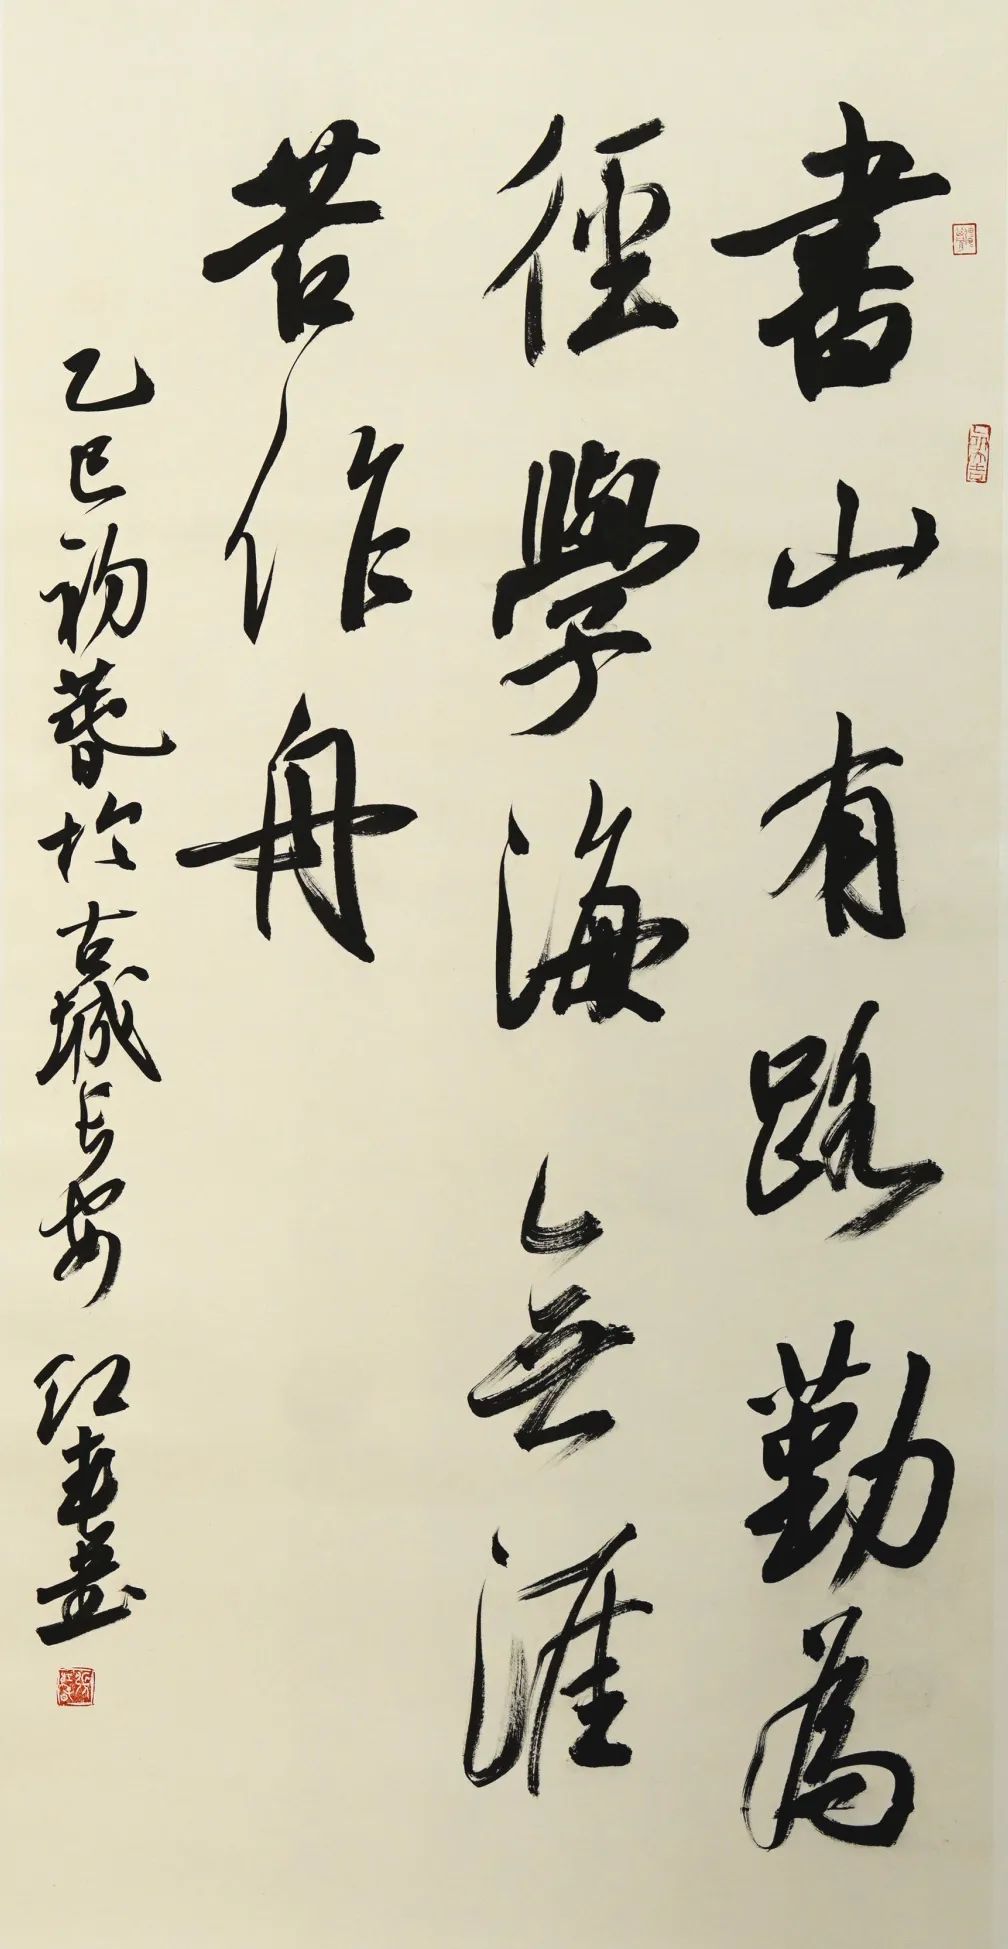 書山有路勤為
徑學海無涯
苦作舟
乙巳初春於古城長安 紅春書